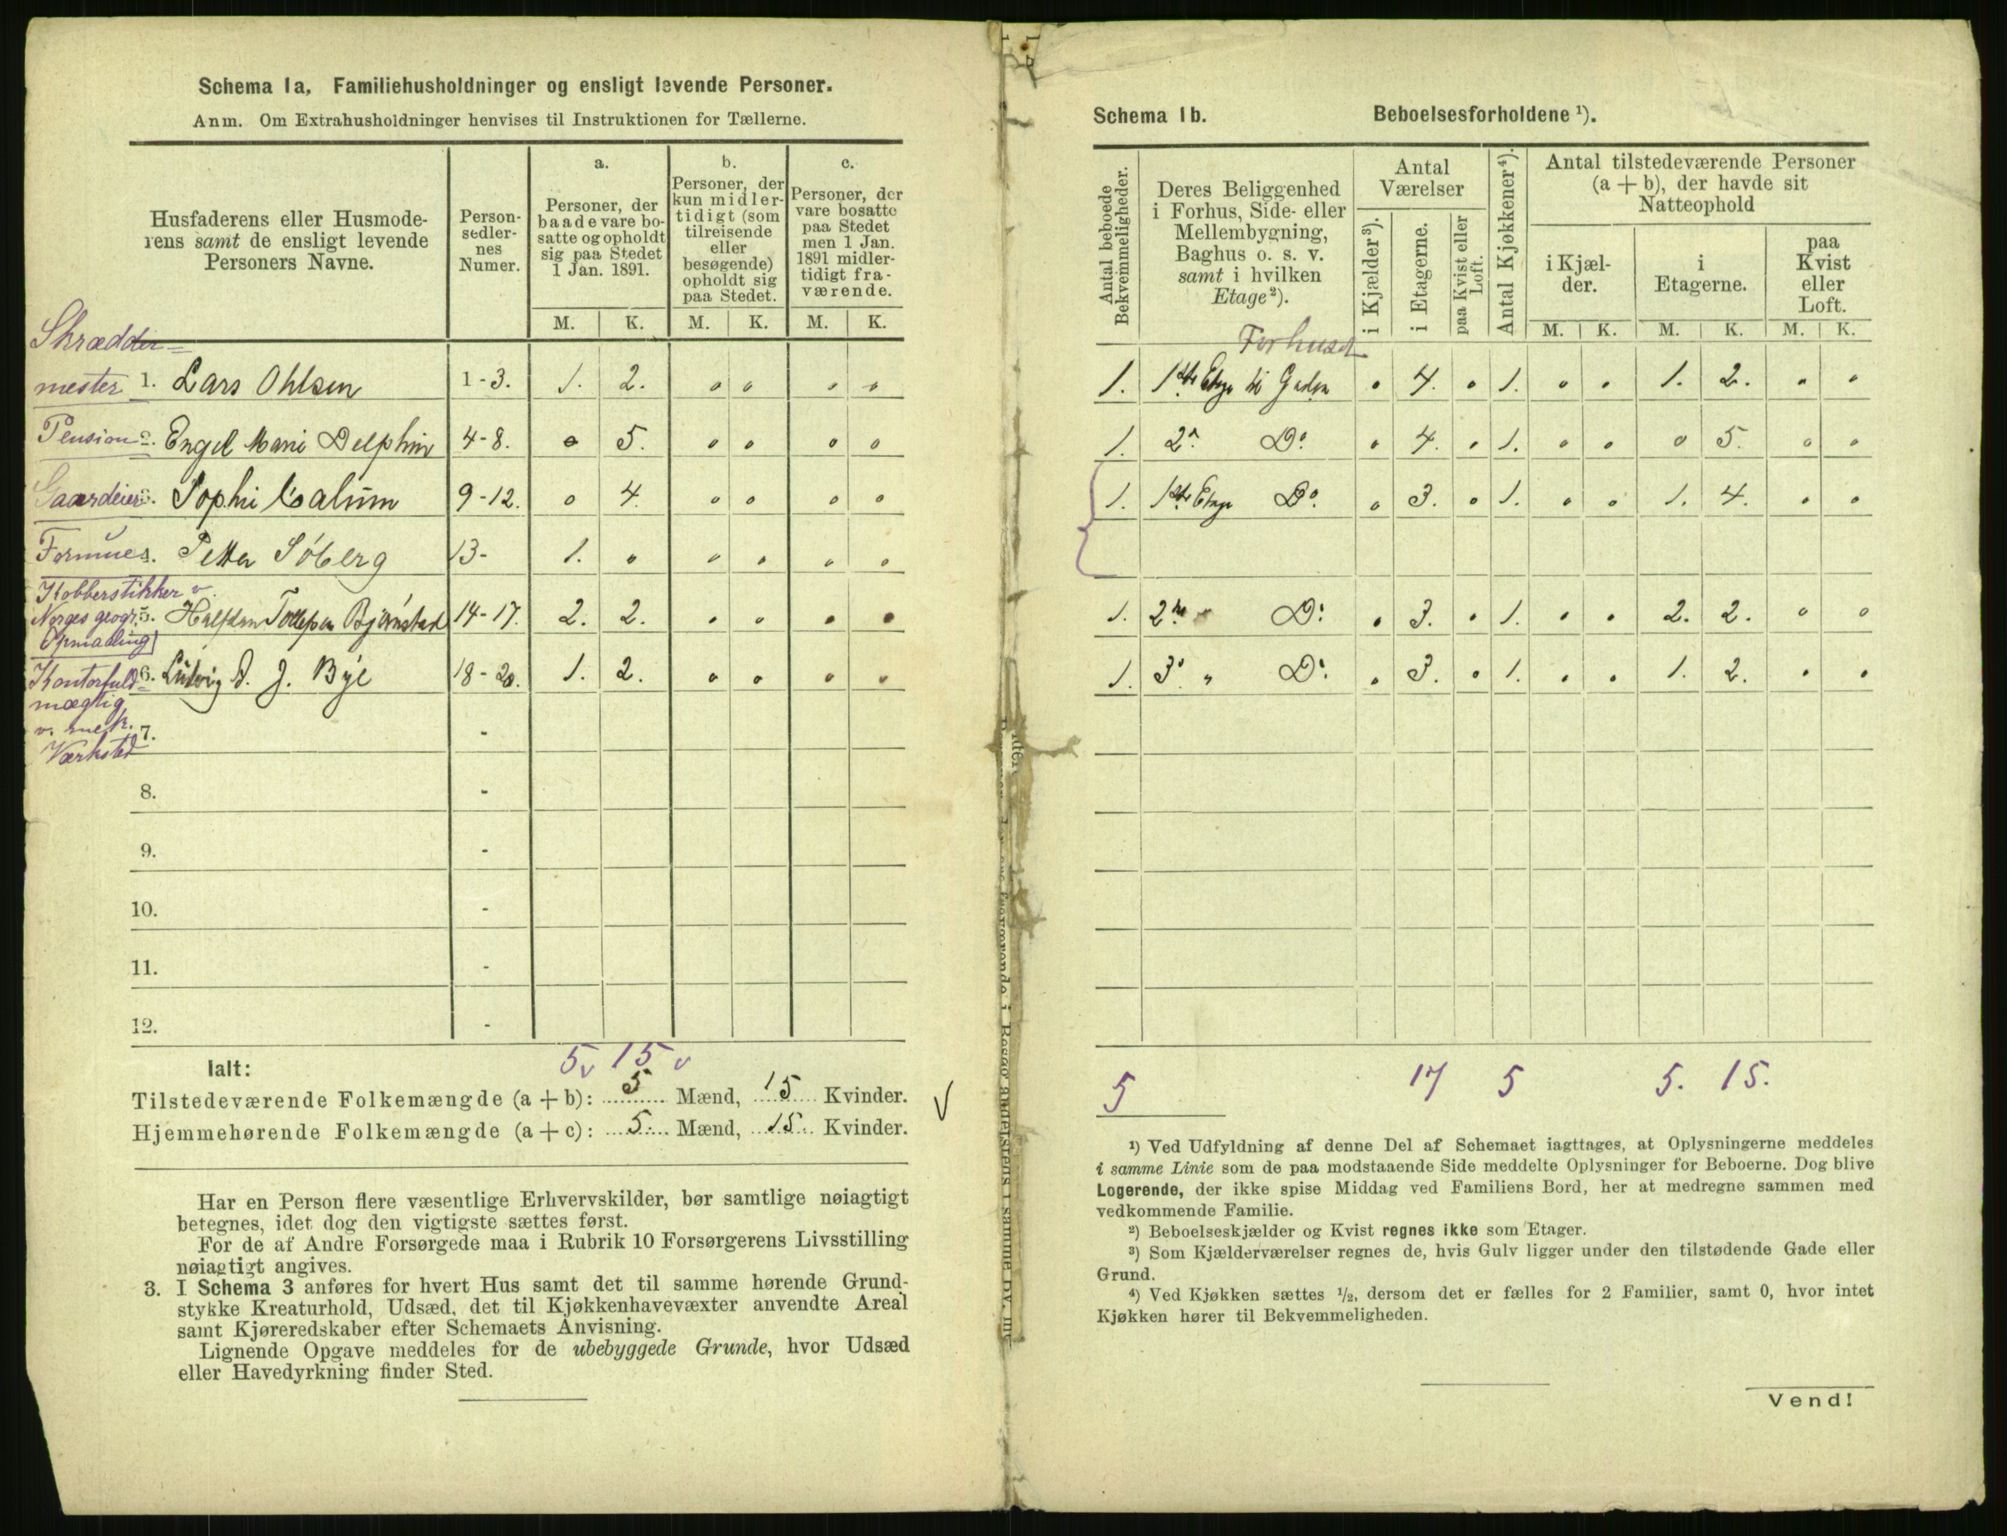 Schema 1a. Familiehusholdninger og ensligt levende Personer.
Anm. Om Extrahusholdninger henvises til Instruktionen for Tællerne.
Husfaderens eller Husmoderens samt de ensligt levende Personers Navne.
Personsedlernes Numer.
a. Personer, der baade vare bosatte og opholdt sig paa Stedet 1 Jan. 1891.
b. Personer, der kun midlertidigt (som tilreisende eller besøgende) opholdt sig paa Stedet.
c. Personer, der vare bosatte paa Stedet men 1 Jan. 1891 midlertidigt fraværende.
M. K. M. K. M. K.
Skrædder=
mester 1. Lars Ohlsen 1-3. 1. 2. 0 0 0 0
Pension 2. Engel Marie Delphin 4-8. 0 5. 0 0 0 0
Gaardeier 3. Sophie Calum 9-12. 0 4. 0 0 0 0
Formues 4. Petter Söberg 13- 1. 0 0 0 0 0
Kobberstikker v.
Norges geogr. 5. Halfdan Tollefsen Bjørnstad 14-17. 2. 2. 0 0 0 0
Opmaaling
Kontorfuld= 6. Ludvig A. J. Bye 18-20. 1. 2. 0 0 0 0
mægtig
v. mek. 7. -
Værksted
8. -
9. -
10. -
11. -
12. -
5 v 15 v
Ialt:
Tilstedeværende Folkemængde (a + b): 5 Mænd, 15 Kvinder.
Hjemmehørende Folkemængde (a + c): 5. Mænd, 15. Kvinder.
Har en Person flere væsentlige Erhvervskilder, bør samtlige nøiagtigt
betegnes, idet dog den vigtigste sættes først.
For de af Andre Forsørgede maa i Rubrik 10 Forsørgerens Livsstilling
nøiagtigt angives.
3. I Schema 3 anføres for hvert Hus samt det til samme hørende Grund-
stykke Kreaturhold, Udsæd, det til Kjøkkenhavevæxter anvendte Areal
samt Kjøreredskaber efter Schemaets Anvisning.
Lignende Opgave meddeles for de ubebyggede Grunde, hvor Udsæd
eller Havedyrkning finder Sted.
Schema 1b. Beboelsesforholdene ¹).
Antal beboede Bekvemmeligheder.
Deres Beliggenhed i Forhus, Side- eller Mellembygning, Baghus o. s. v. samt i hvilken Etage²).
Antal Værelser
i Kjælder³).
i Etagerne.
paa Kvist eller Loft.
Antal Kjøkkener⁴).
Antal tilstedeværende Personer (a + b), der havde sit Natteophold
i Kjælder.
i Etagerne.
paa Kvist eller Loft.
M. K. M. K. M. K.
Forhuset
1. 1ste Etage til Gaden 0 4. 0 1. 0 0 1. 2. 0 0
1. 2n Do 0 4. 0 1. 0 0 0 5. 0 0
1. 1ste Etage Do. 0 3. 0 1. 0 0 1. 4. 0 0
1. 2n " Do 0 3. 0 1. 0 0 2. 2. 0 0
1. 3' " Do 0 3. 0 1. 0 0 1. 2. 0 0
5 17 5 5. 15.
¹) Ved Udfyldning af denne Del af Schemaet iagttages, at Oplysningerne meddeles
i samme Linie som de paa modstaaende Side meddelte Oplysninger for Beboerne. Dog blive
Logerende, der ikke spise Middag ved Familiens Bord, her at medregne sammen med
vedkommende Familie.
²) Beboelseskjælder og Kvist regnes ikke som Etager.
³) Som Kjælderværelser regnes de, hvis Gulv ligger under den tilstødende Gade eller
Grund.
⁴) Ved Kjøkken sættes ½, dersom det er fælles for 2 Familier, samt 0, hvor intet
Kjøkken hører til Bekvemmeligheden.
Vend!